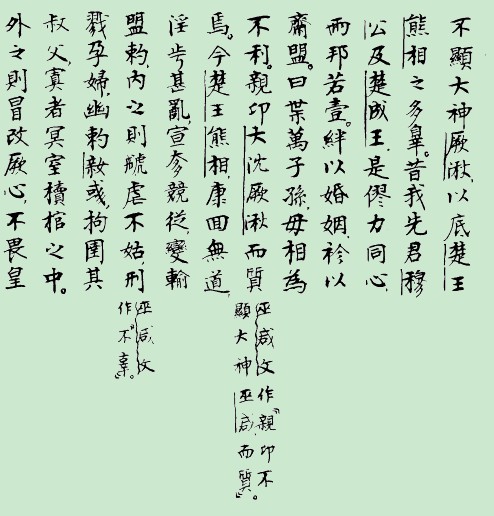 不顯大神厥湫,以底楚王
熊相之多辠。昔我先君穆
公及楚成王,是僇力同心,
兩邦若壹。絆以婚姻,袗以
齋盟。曰葉萬子孫,毋相為
不利。親卬大沈厥湫而質
焉。今楚王熊相,康回無道,
淫甚亂,宣奓競從,變輸
盟勅,內之則虣虐不姑,刑
戮孕婦,幽勅拘圉其
叔父,寘者冥室櫝棺之中。
外之則冒改厥心,不畏皇
巫咸文作『親卬不
顯大神巫咸,而質』。
巫咸文
作『不辜』。